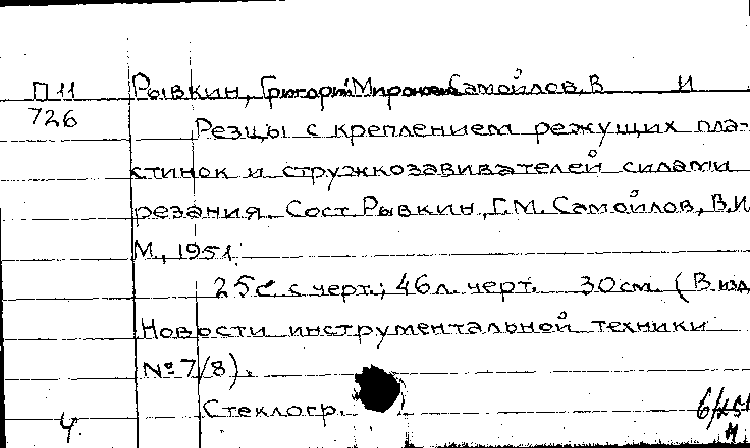 П11 Рывкин, Григорий Миронович Самойлов, В И
726
Резцы с креплением режущих пла-
стинок и стружкозавивателей силами
резания. Сост. Рывкин, Г.М. Самойлов, В.И
М., 1951.
25с. с черт.; 46л. черт. 30см. (В изд
Новости инструментальной техники
№ 7/8).
Стеклогр.